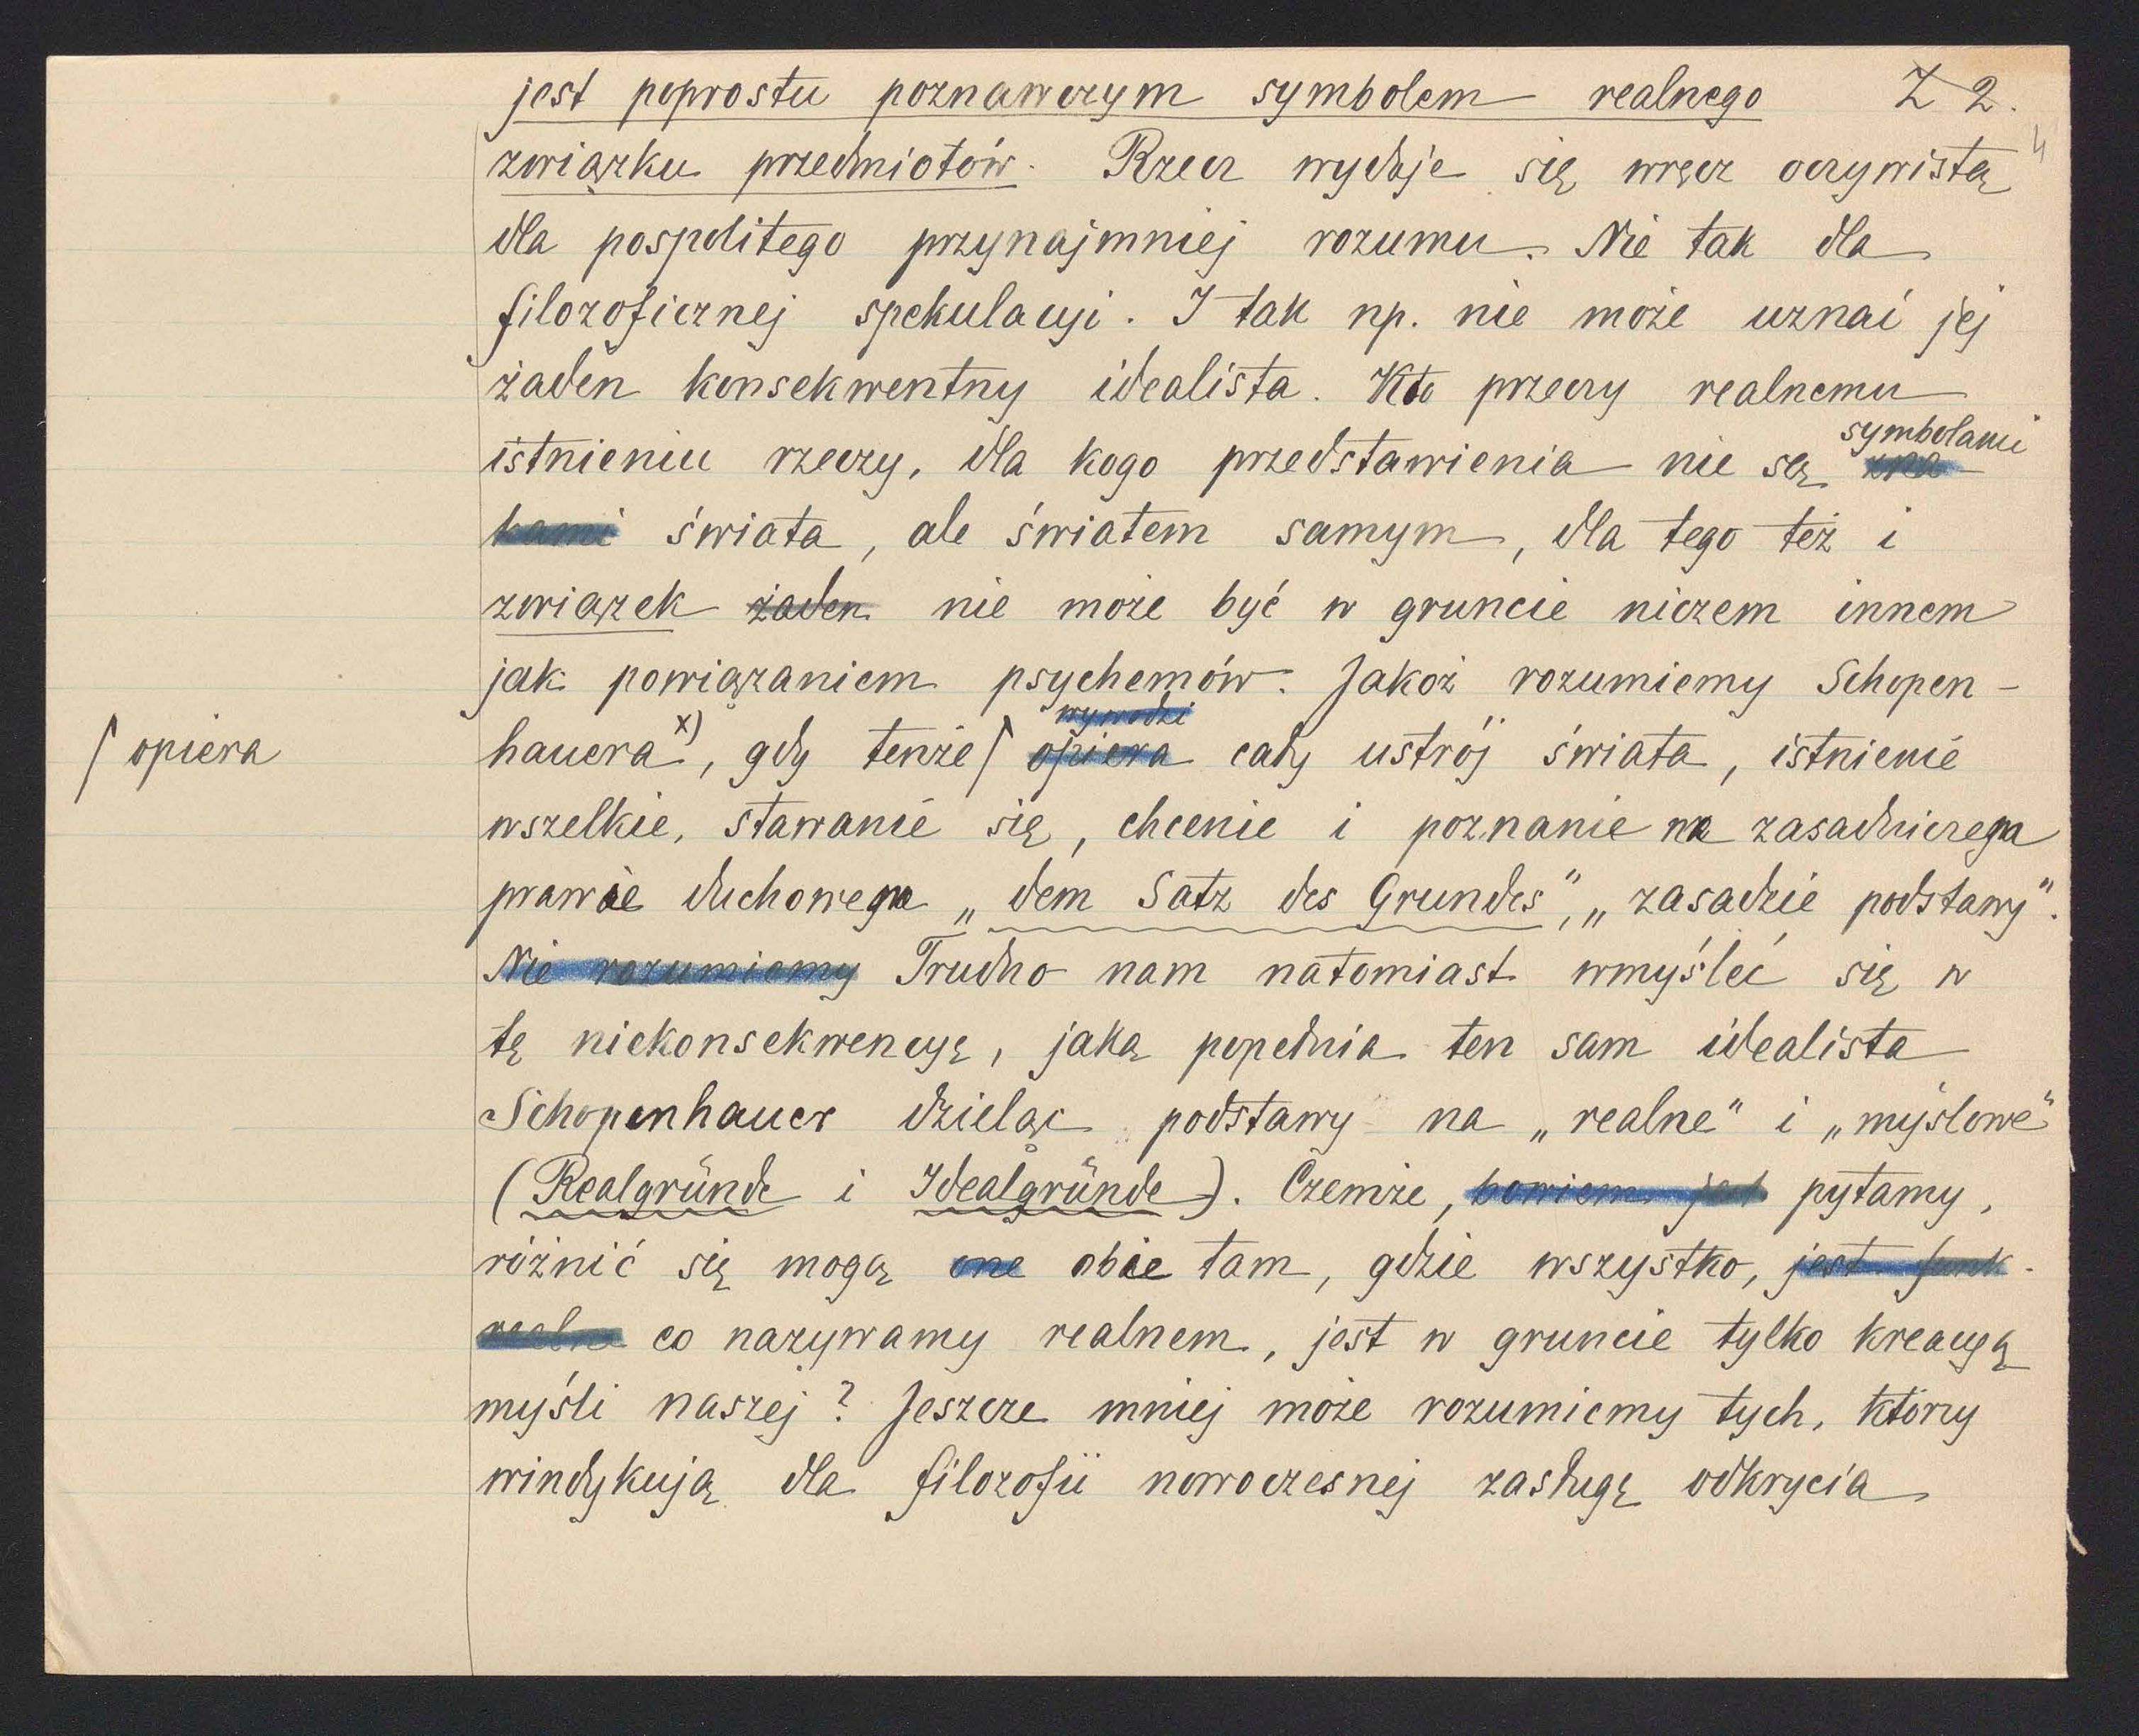 jest poprostu poznawczym symbolem realnego Z 2.
4
związku przedmiotów. Rzecz wydaje się wręcz oczywistą
dla pospolitego przynajmniej rozumu. Nie tak dla
filozoficznej spekulacyi. I tak np. nie może uznać jej
żaden konsekwentny idealista. Kto przeczy realnemu
symbolami
istnieniu rzeczy, dla kogo przedstawienia nie są zna-
kami świata, ale światem samym, dla tego też i
związek żaden nie może być w gruncie niczem innem
jak powiązaniem psychemów. Jakoż rozumiemy Schopen-
wywodzi
/ opiera
hauera x), gdy tenże / opiera cały ustrój świata, istnienie
wszelkie, stawanie się, chcenie i poznanie na zasadniczem
prawie duchowem „dem Satz des Grundes", „zasadzie podstawy".
Nie rozumiemy Trudno nam natomiast wmyśleć się w
tę niekonsekwencyę, jaką popełnia ten sam idealista
Schopenhauer dzieląc podstawy na „realne" i „myślowe"
(Realgründe i Idealgründe). Czemże, bowiem jest pytamy,
różnić się mogą one obie tam, gdzie wszystko, jest funk-
realne co nazywamy realnem, jest w gruncie tylko kreacyą
myśli naszej? Jeszcze mniej może rozumiemy tych, którzy
windykują dla filozofii nowoczesnej zasługę odkrycia